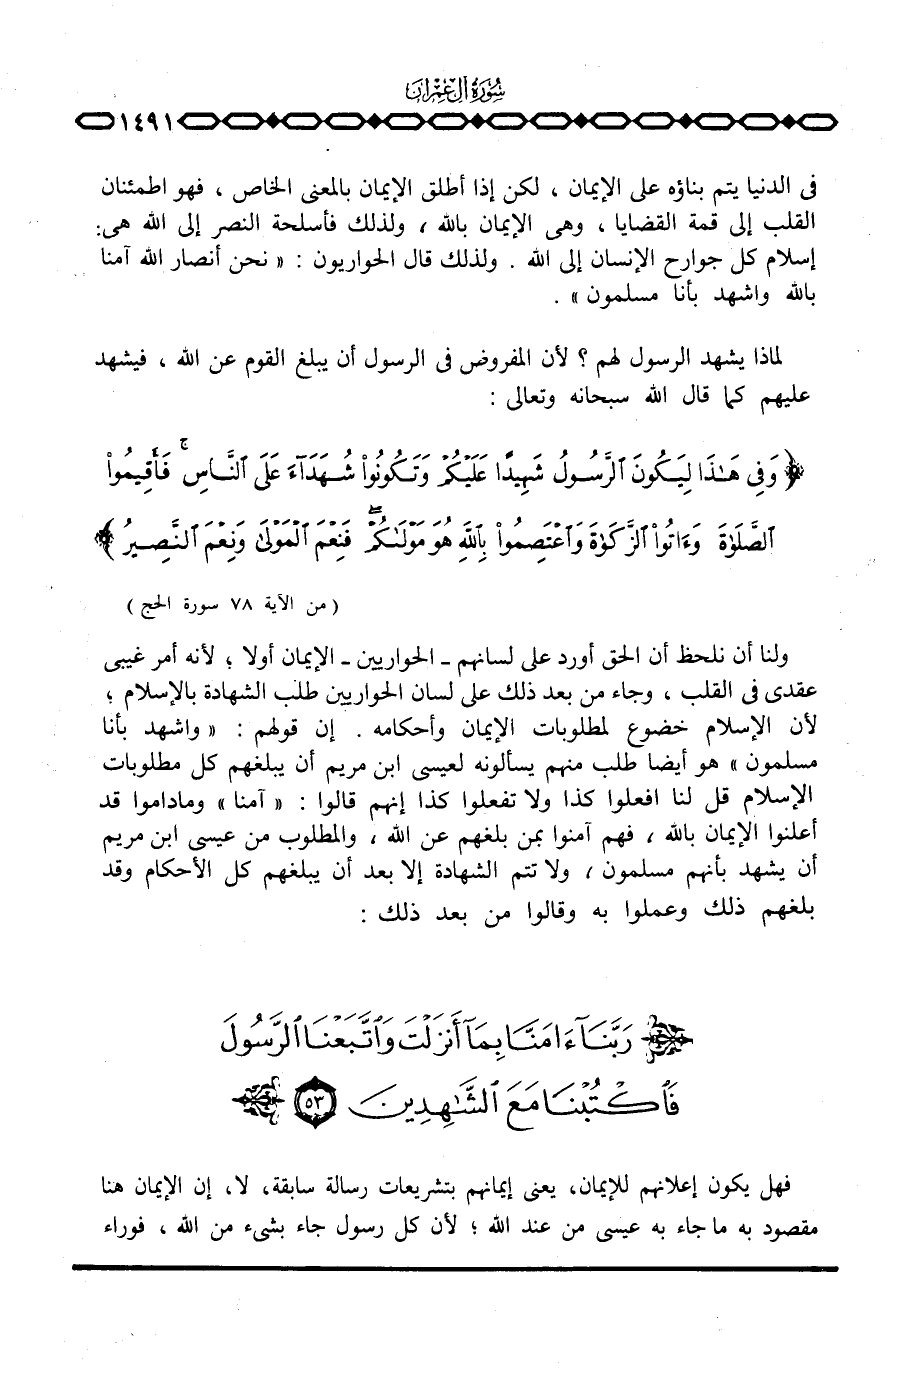 سُورَةُ آلِ عِمْرَانَ
١٤٩١
فى الدنيا يتم بناؤه على الإيمان ، لكن إذا أطلق الإيمان بالمعنى الخاص ، فهو اطمئنان
القلب إلى قمة القضايا ، وهى الإيمان بالله ، ولذلك فأسلحة النصر إلى الله هى:
إسلام كل جوارح الإنسان إلى الله . ولذلك قال الحواريون : « نحن أنصار الله آمنا
بالله واشهد بأنا مسلمون » .
لماذا يشهد الرسول لهم ؟ لأن المفروض فى الرسول أن يبلغ القوم عن الله ، فيشهد
عليهم كما قال الله سبحانه وتعالى :
﴿ وَفِى هَـٰذَا لِيَكُونَ ٱلرَّسُولُ شَهِيدًا عَلَيْكُمْ وَتَكُونُوا۟ شُهَدَآءَ عَلَى ٱلنَّاسِ ۚ فَأَقِيمُوا۟
ٱلصَّلَوٰةَ وَءَاتُوا۟ ٱلزَّكَوٰةَ وَٱعْتَصِمُوا۟ بِٱللَّهِ هُوَ مَوْلَىٰكُمْ ۖ فَنِعْمَ ٱلْمَوْلَىٰ وَنِعْمَ ٱلنَّصِيرُ ﴾
( من الآية ٧٨ سورة الحج )
ولنا أن نلحظ أن الحق أورد على لسانهم ـ الحواريين ـ الإيمان أولا ؛ لأنه أمر غيبى
عقدى فى القلب ، وجاء من بعد ذلك على لسان الحواريين طلب الشهادة بالإسلام ؛
لأن الإسلام خضوع لمطلوبات الإيمان وأحكامه . إن قولهم : « واشهد بأنا
مسلمون » هو أيضا طلب منهم يسألونه لعيسى ابن مريم أن يبلغهم كل مطلوبات
الإسلام قل لنا افعلوا كذا ولا تفعلوا كذا إنهم قالوا : « آمنا » وماداموا قد
أعلنوا الإيمان بالله ، فهم آمنوا بمن بلغهم عن الله ، والمطلوب من عيسى ابن مريم
أن يشهد بأنهم مسلمون ، ولا تتم الشهادة إلا بعد أن يبلغهم كل الأحكام وقد
بلغهم ذلك وعملوا به وقالوا من بعد ذلك :
رَبَّنَآ ءَامَنَّا بِمَآ أَنزَلْتَ وَٱتَّبَعْنَا ٱلرَّسُولَ
فَٱكْتُبْنَا مَعَ ٱلشَّـٰهِدِينَ ٥٣
فهل يكون إعلانهم للإيمان، يعنى إيمانهم بتشريعات رسالة سابقة، لا، إن الإيمان هنا
مقصود به ما جاء به عيسى من عند الله ؛ لأن كل رسول جاء بشىء من الله ، فوراء